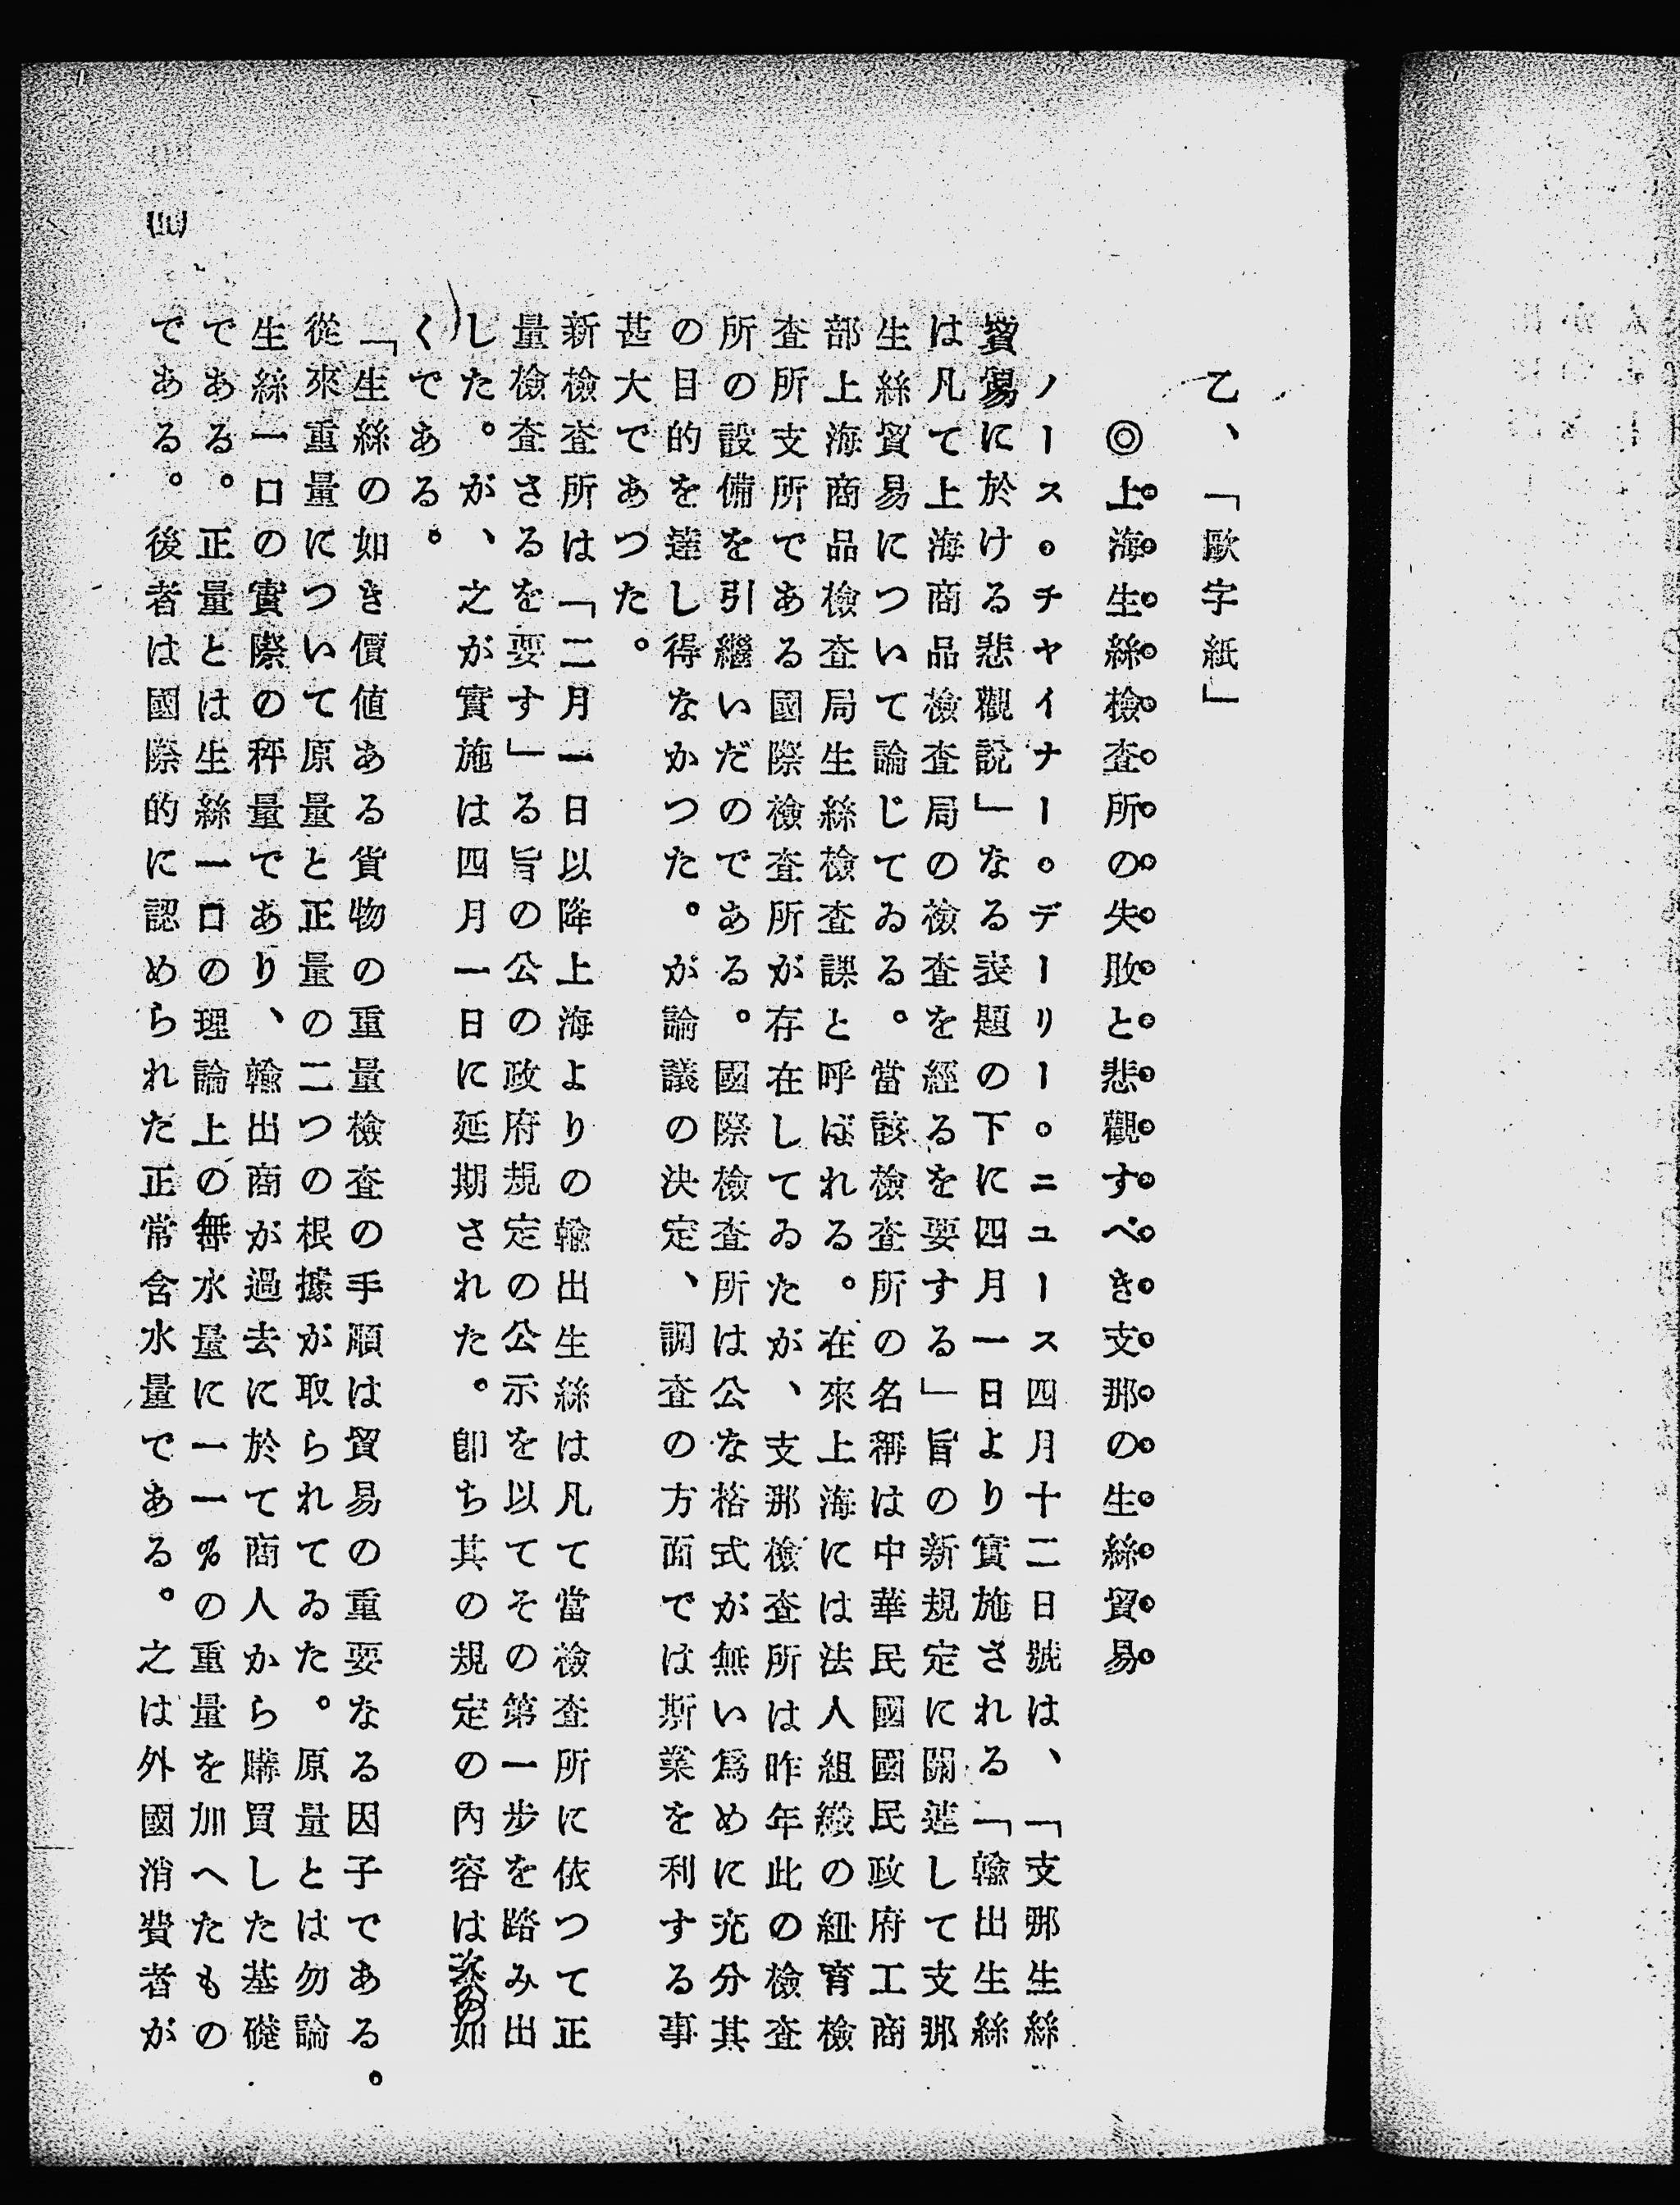 乙、「歐字紙」
◎上海生絲檢査所の失敗と悲觀すべき支那の生絲貿易
ノース。チヤイナー。デーリー。ニユース四月十二日號は、「支那生絲
貿易に於ける悲觀説」なる表題の下に四月一日より實施される「輸出生絲
は凡て上海商品檢査局の檢査を經るを要する」旨の新規定に關連して支那
生絲貿易について論じてゐる。當該檢査所の名稱は中華民國國民政府工商
部上海商品檢査局生絲檢査課と呼ばれる。在來上海には法人組織の紐育檢
査所支所である國際檢査所が存在してゐたが、支那檢査所は昨年此の檢査
所の設備を引繼いだのである。國際檢査所は公な格式が無い爲めに充分其
の目的を達し得なかつた。が論議の決定、調査の方面では斯業を利する事
甚大であつた。
新檢査所は「二月一日以降上海よりの輸出生絲は凡て當檢査所に依つて正
量檢査さるを要す」る旨の公の政府規定の公示を以てその第一步を踏み出
した。が、之が實施は四月一日に延期された。卽ち其の規定の內容は次の如
くである。
「生絲の如き價値ある貨物の重量檢査の手順は貿易の重要なる因子である。
從來重量について原量と正量の二つの根據が取られてゐた。原量とは勿論
生絲一口の實際の秤量であり、輸出商が過去に於て商人から購買した基礎
である。正量とは生絲一口の理論上の無水量に一一%の重量を加へたもの
である。後者は國際的に認められた正常含水量である。之は外國消費者が